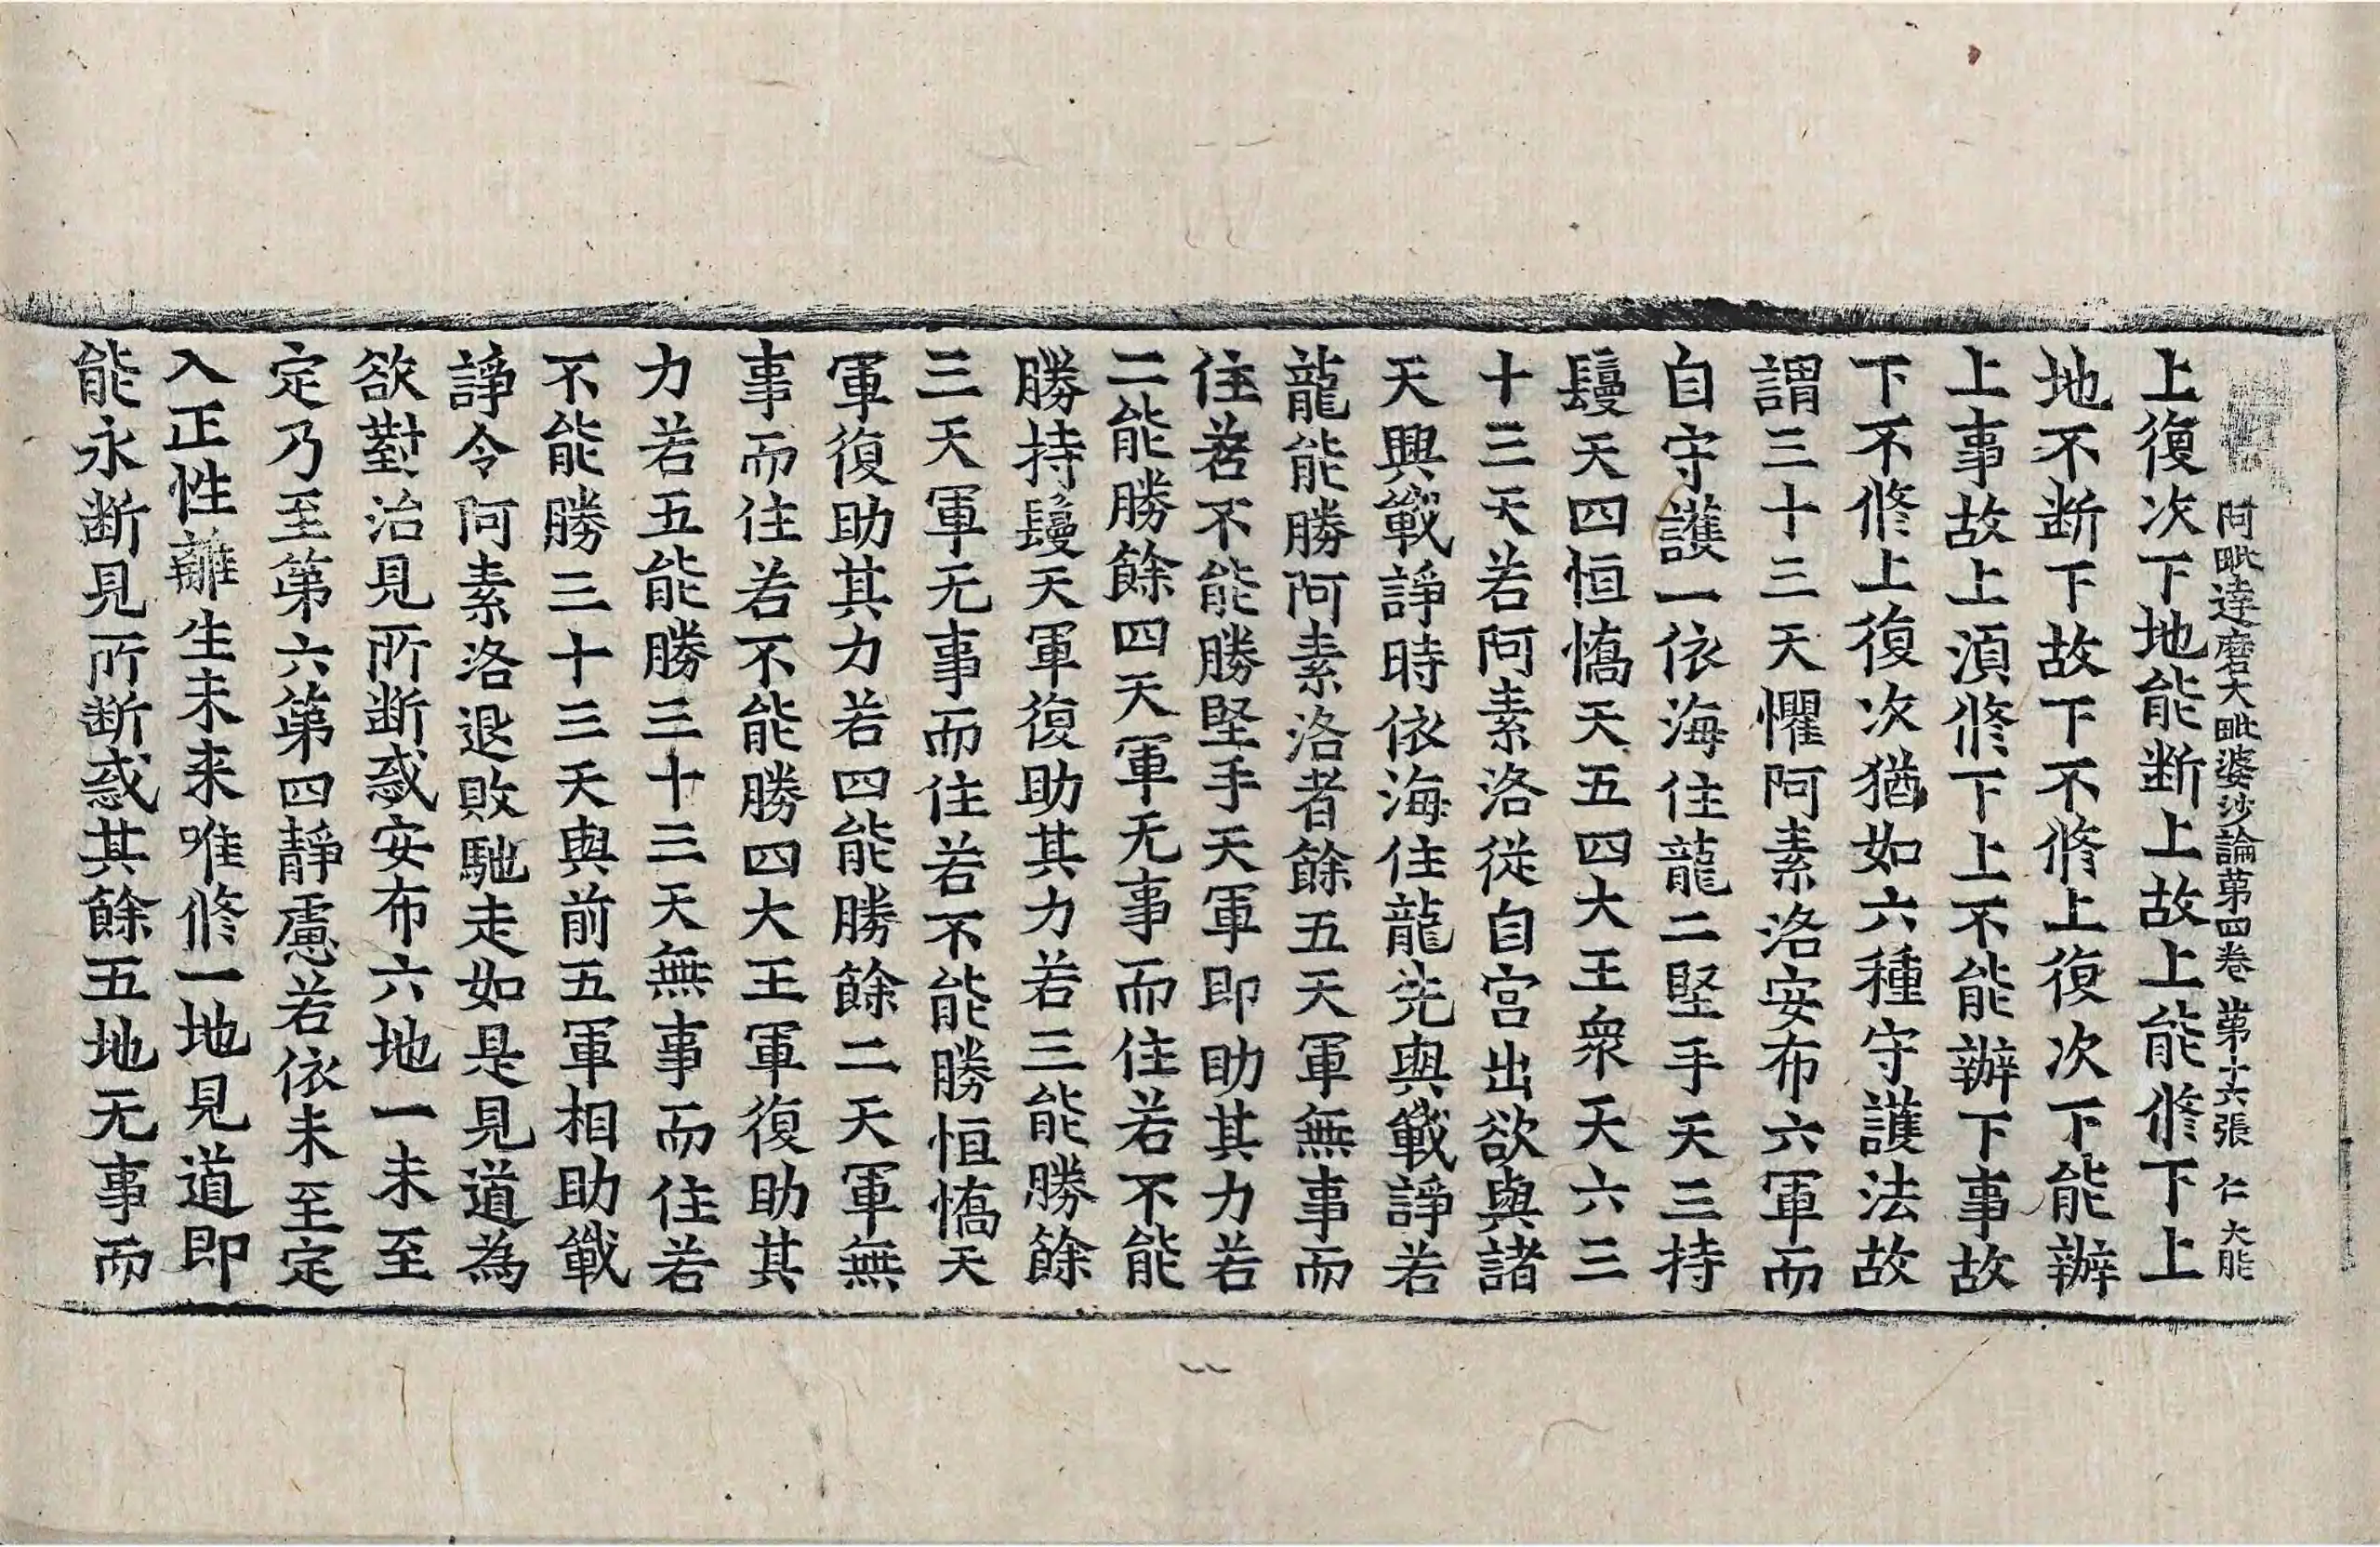 阿毗達磨大毗婆沙論第四卷 第十六張 仁 大能
上復次下地能断上故上能修下上
地不断下故下不修上復次下能辦
上事故上須修下上不能辦下事故
下不修上復次猶如六種守護法故
謂三十三天懼阿素洛安布六軍而
自守護一依海住龍二堅手天三持
鬘天四恒憍天五四大王衆天六三
十三天若阿素洛從自宮出欲與諸
天興戰諍時依海住龍先與戰諍若
龍能勝阿素洛者餘五天軍無事而
住若不能勝堅手天軍即助其力若
二能勝餘四天軍无事而住若不能
勝持鬘天軍復助其力若三能勝餘
三天軍无事而住若不能勝恒憍天
軍復助其力若四能勝餘二天軍無
事而住若不能勝四大王軍復助其
力若五能勝三十三天無事而住若
不能勝三十三天與前五軍相助戰
諍令阿素洛退敗馳走如是見道為
欲對治見所断惑安布六地一未至
定乃至第六第四靜慮若依未至定
入正性離生未来唯修一地見道即
能永断見所断惑其餘五地无事而